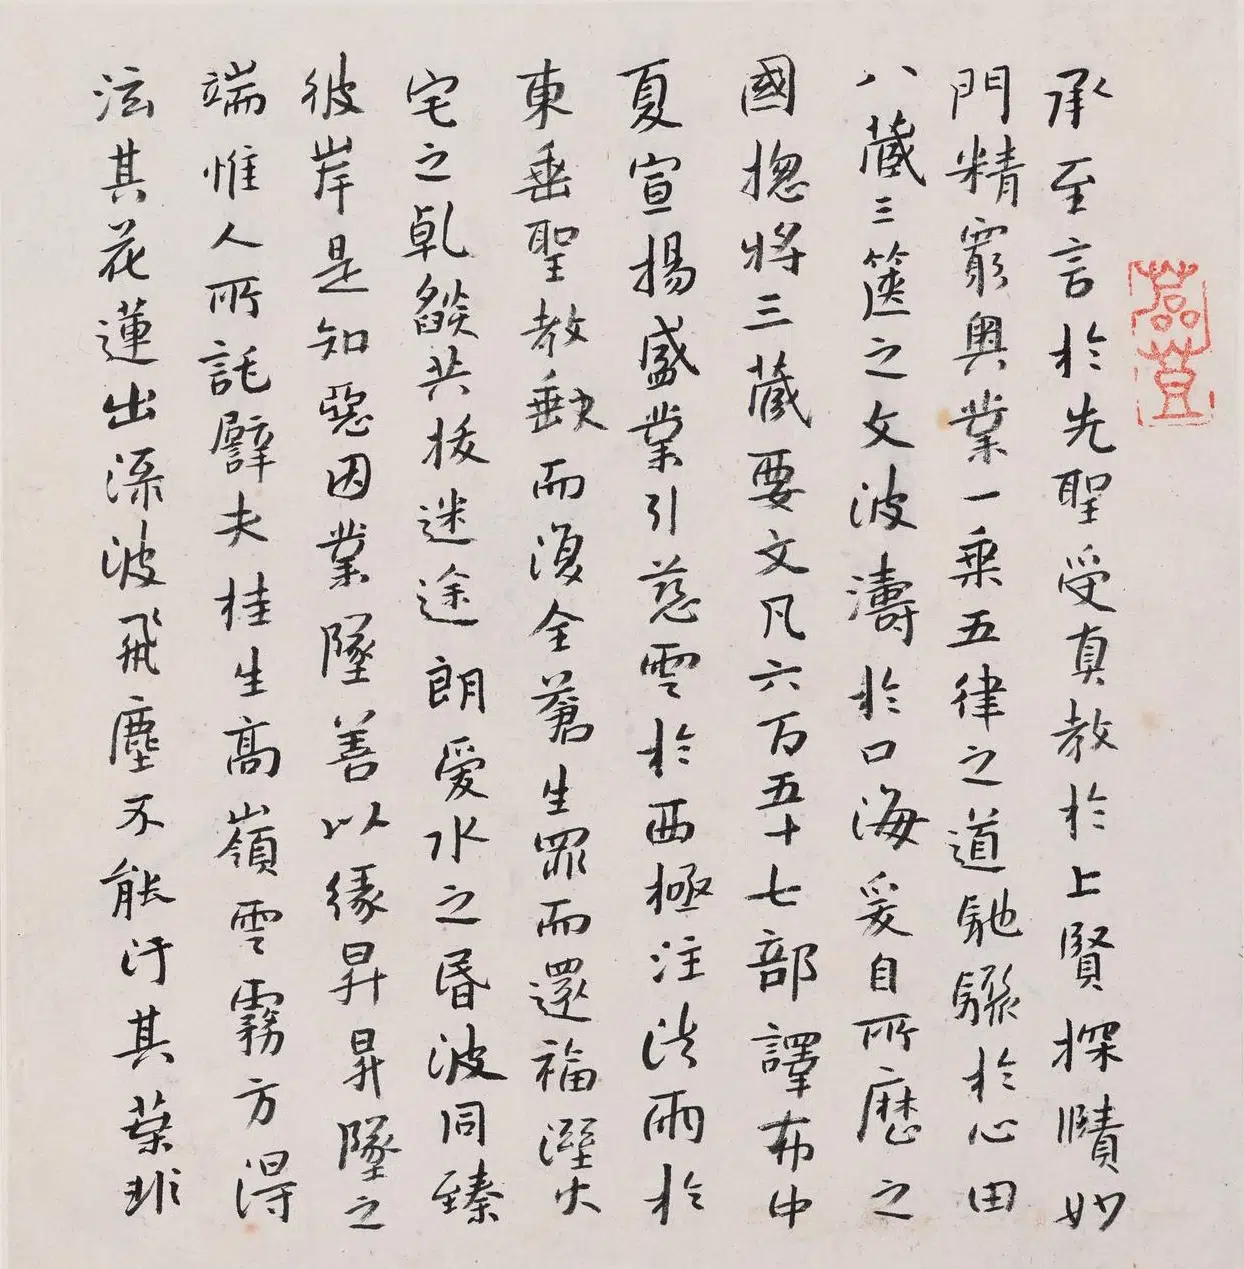 承至言於先聖受真教於上賢探賾妙
門精窮奧業一乘五律之道馳驟於心田
八藏三篋之文波濤於口海爰自所歷之
國揔將三藏要文凡六百五十七部譯布中
夏宣揚盛業引慈雲於西極注法雨於
東垂聖教缺而復全蒼生罪而還福濕火
宅之乹燄共拔迷途朗愛水之昏波同臻
彼岸是知惡因業墜善以緣昇昇墜之
端惟人所託譬夫桂生高嶺雲霧方得
泫其花蓮出淥波飛塵不能汙其葉非